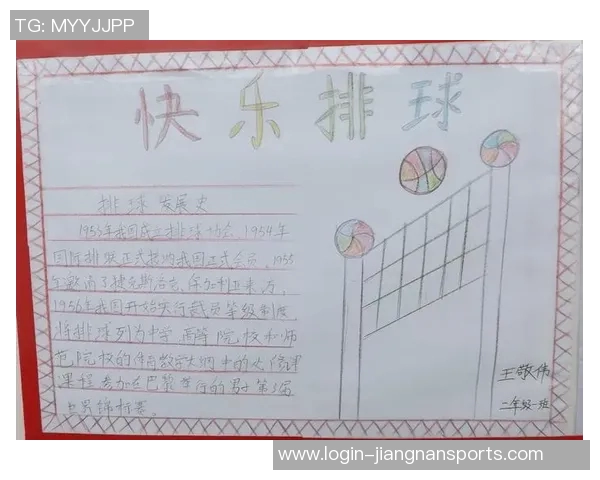 TG: MYYJJPP
快乐排球
排球发展史
1953年我国成立排球协会,1954年
国际排联正式接纳我国正式会员,1955
年邀请了捷克斯洛克,保加利亚来方,
1956年我国开始实行裁员等级制度,
将排球列为中学 高等院校和师
范院校的体育教学大纲中的
课程 参加在巴黎举行的男子第3届
世界锦标赛。
王敬伟
二年级一班
www.login-jiangnansports.com